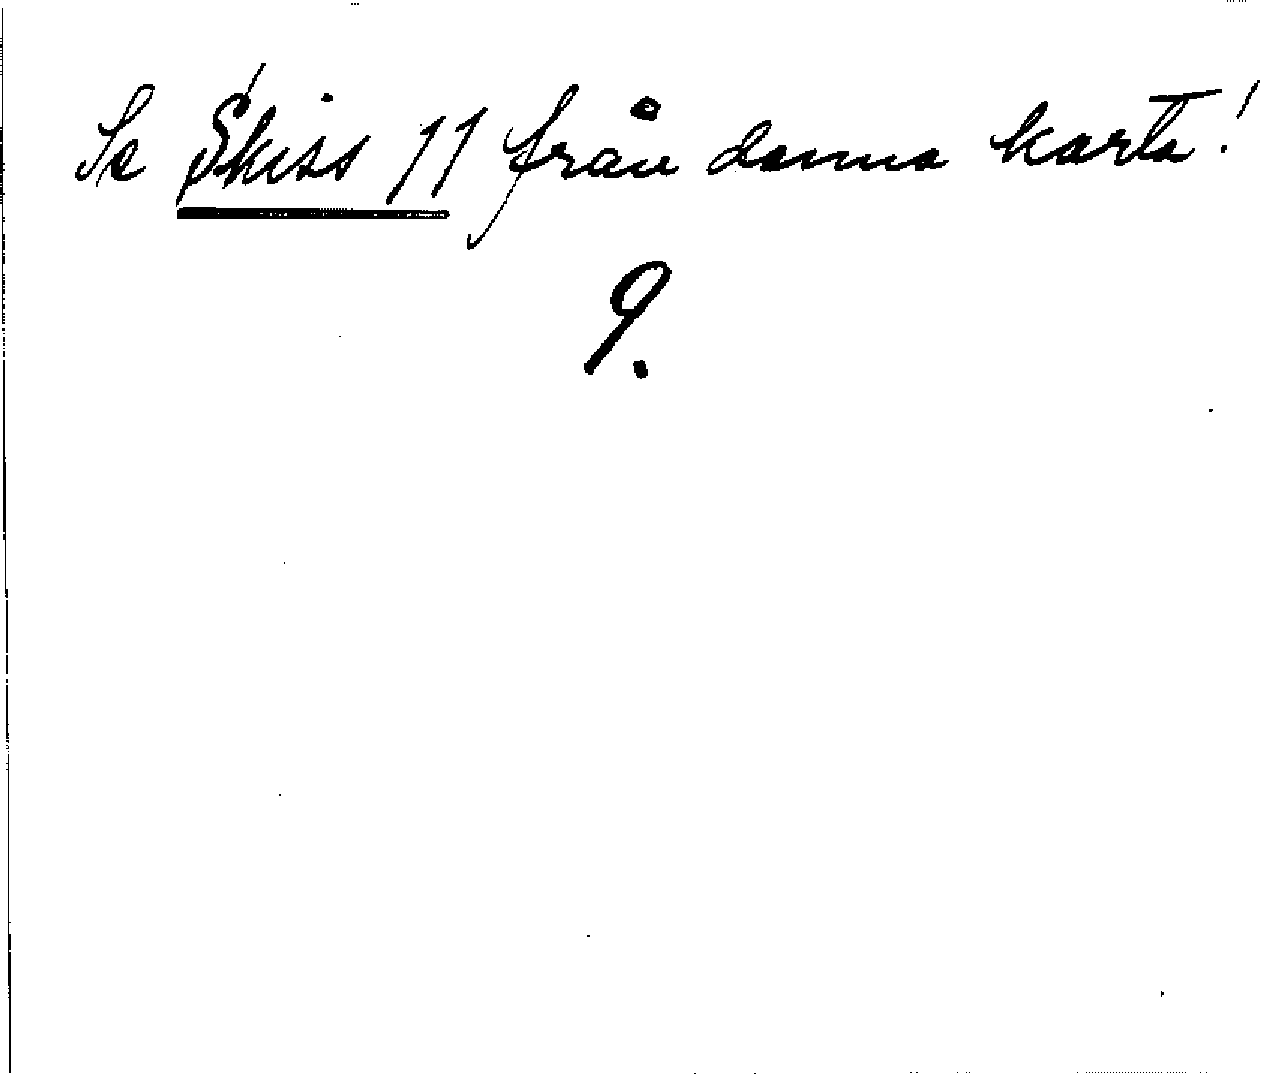 Se Skiss 11 från denna karta!
9.